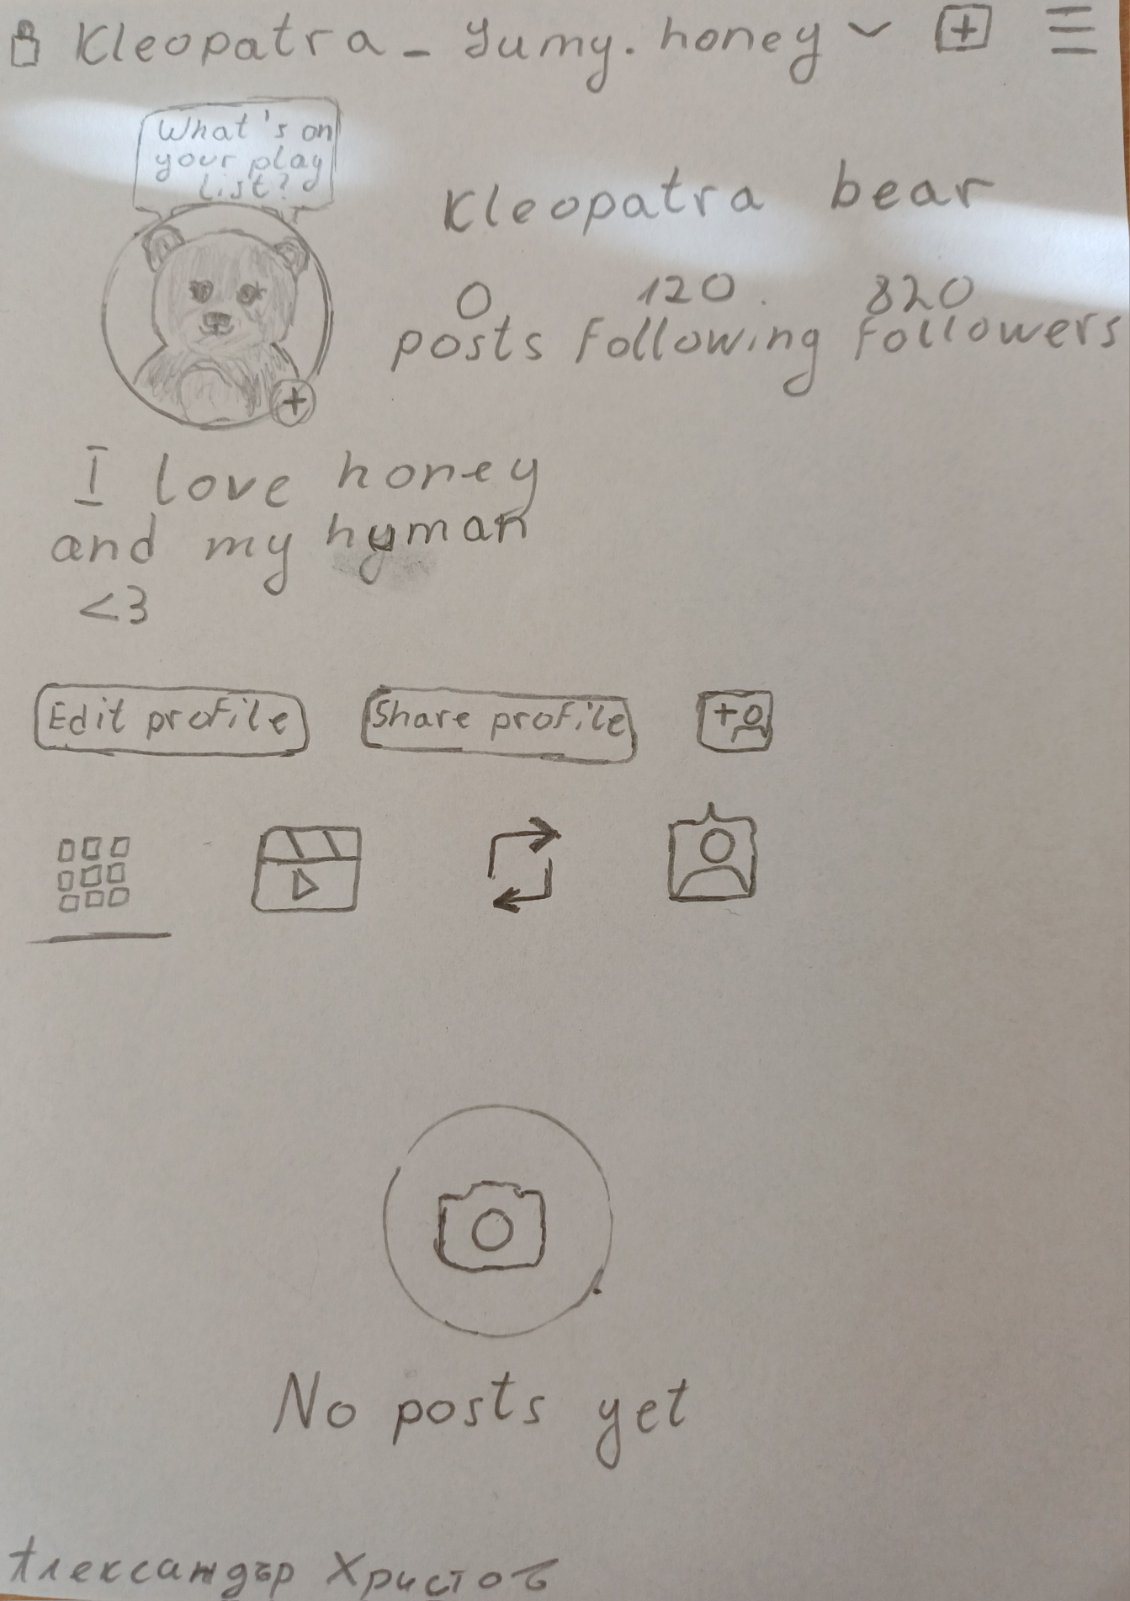 Kleopatra_Yumy.honey
What's on
your play
list?
Kleopatra bear
0 120 820
posts following followers
I love honey
and my hyman
<3
Edit profile Share profile
No posts yet
Александър Христов